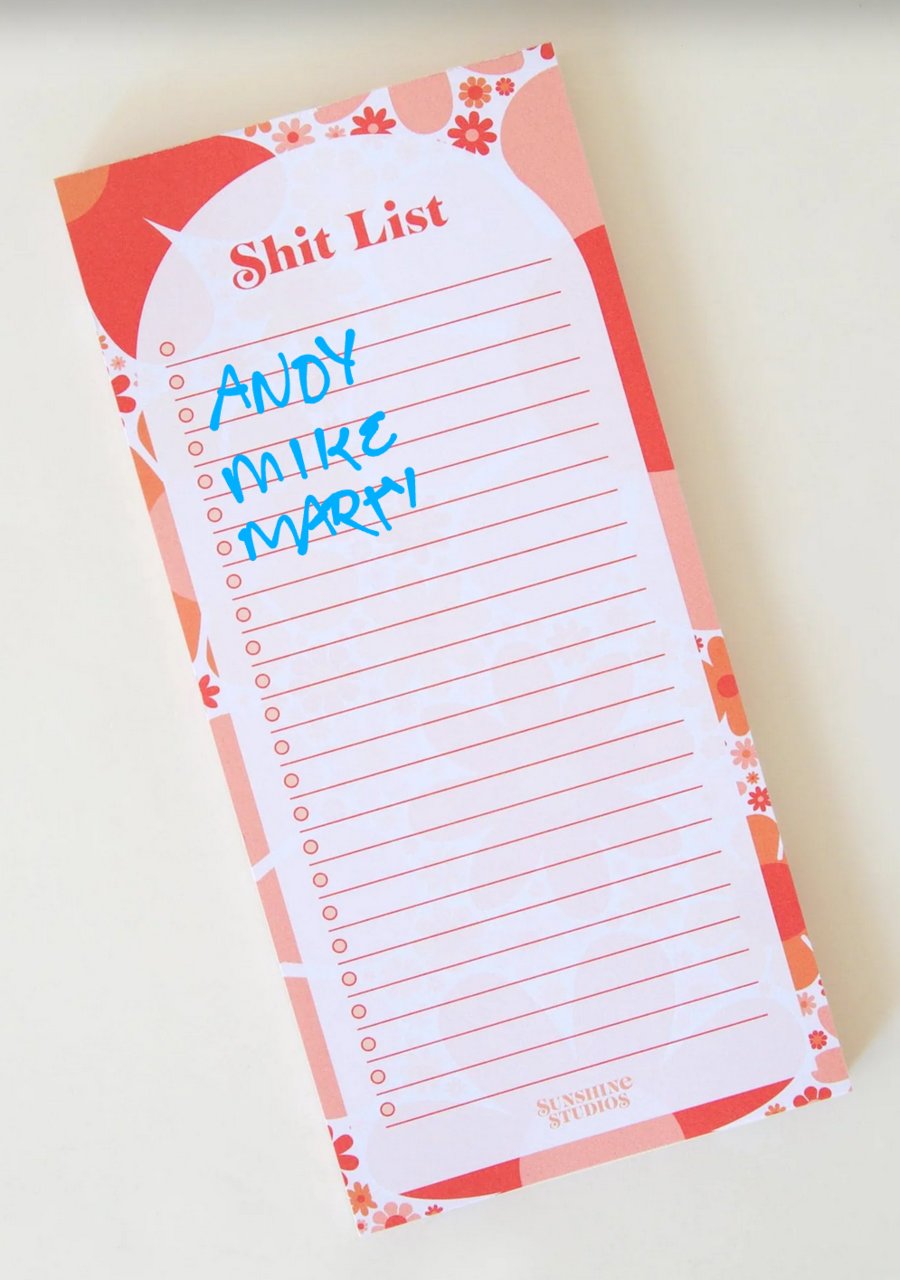 Shit List
ANDY
MIKE
MARTY
SUNSHINE
STUDIOS